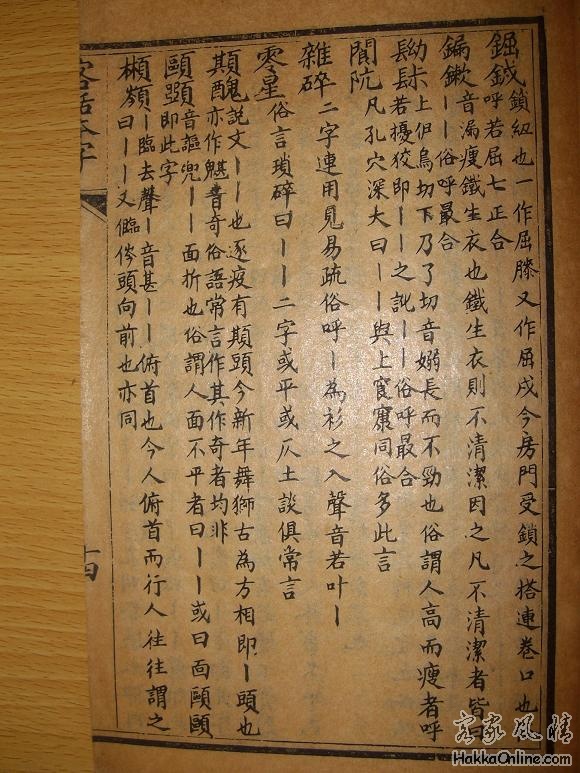 鎖紐也一作屈膝又作屈戌今房門受鎖之搭連卷口也
呼若屈七正合
鏉音漏瘦鐵生衣也鐵生衣則不清潔因之凡不清潔者皆曰
丨丨俗呼最合
鳥切下乃了切音嫋長而不勁也俗謂人高而瘦者呼
若擾狡即丨丨之訛丨丨俗呼最合
閬阬凡孔穴深大曰丨丨與上同俗多此言
雜碎二字連用見易疏俗呼丨為衫之入聲音若叶丨
零星俗言瑣碎曰丨丨二字或平或仄土談俱常言
䫏醜說文丨丨也逐疫有䫏頭今新年舞獅古為方相即丨頭也
亦作魌音奇俗語常言作其作奇者均非
音謳兜丨丨面折也俗謂人面不平者曰丨丨或曰面
即此字
丨臨去聲丨音甚丨丨俯首也今人俯首而行人往往謂之
曰丨丨又頭向前也亦同
客話本字
十四
客家風情
HakkaOnline.com